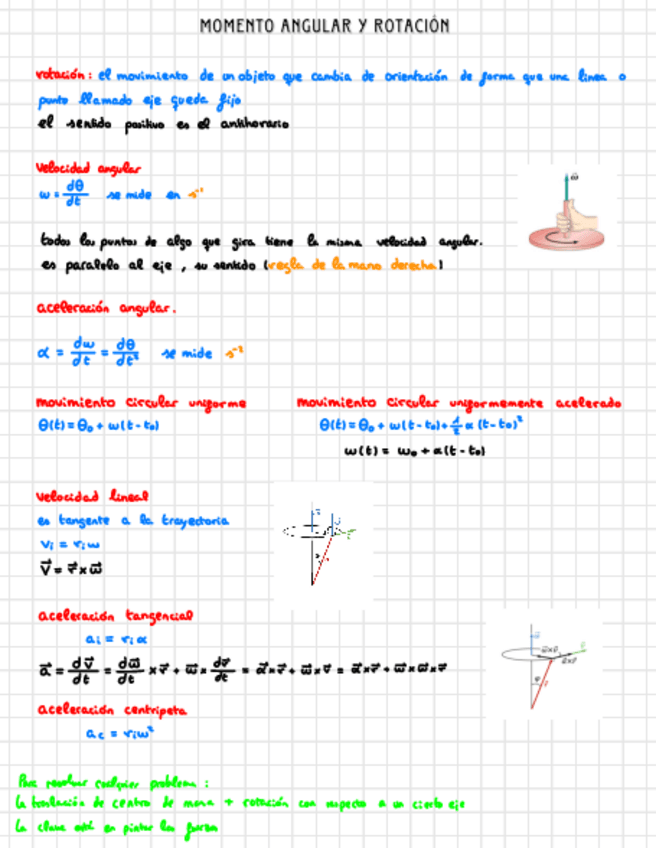 MOMENTO ANGULAR Y ROTACIÓN
rotación: el movimiento de un objeto que cambia de orientación de forma que una linea o
punto llamado eje queda fijo
el sentido positivo es el antihorario
Velocidad angular
ω = dθ/dt se mide en s⁻¹
todos los puntos de algo que gira tiene la misma velocidad angular.
es paralelo al eje, su sentido (regla de la mano derecha)
aceleración angular.
α = dω/dt = dθ/dt² se mide s⁻²
movimiento circular uniforme
θ(t) = θ₀ + ω(t-t₀)
movimiento circular uniformemente acelerado
θ(t) = θ₀ + ω(t-t₀) + 1/2 α (t-t₀)²
ω(t) = ω₀ + α(t-t₀)
velocidad lineal
es tangente a la trayectoria
vᵢ = rᵢω
v⃗ = r⃗ × ω⃗
aceleración tangencial
aᵢ = rᵢα
a⃗ = dv⃗/dt = dω⃗/dt × r⃗ + ω⃗ × dr⃗/dt = α⃗×r⃗ + ω⃗×v⃗ = α⃗×r⃗ + ω⃗×ω⃗×r⃗
aceleración centripeta
ac = rᵢω²
Para resolver cualquier problema:
la traslación de centro de masa + rotación con respecto a un cierto eje
La clave está en pintar las fuerzas